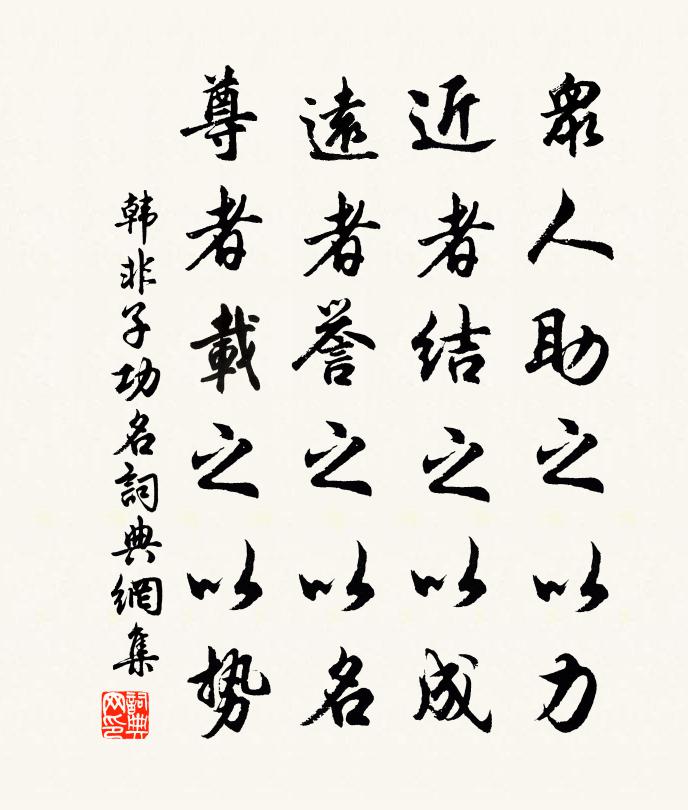 眾人助之以力
近者結之以成
遠者譽之以名
尊者載之以勢
韩非子功名詞典網集
詞典网印